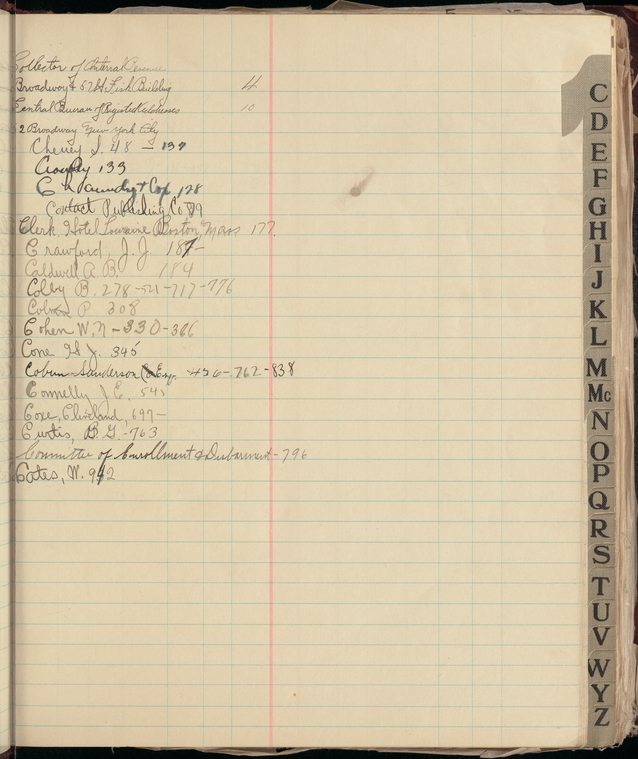 Collector of Internal Revenue
Broadway & 57th Fisk Building 4
Central Bureau of Registered 10
2 Broadway New York City
Cheney S. 48 - 137
133
Laundry 128
Contact Publishing Co 179
Clerk Hotel Louraine Boston, Mass 177
Crawford, J. J. 187-
Caldwell A B. 184
Colby B. 278-521-717-776
P 308
Cohen W. N - 330-366
Cone H J. 345
Coburn Sanderson 436-762-838
Connelly J E. 545
Coxe, Cleveland, 697-
Curtis, B. G. - 763
Committee of Enrollment & Disbarment - 796
Coates, W. 942
C
D
E
F
G
H
I
J
K
L
M
Mc
N
O
P
Q
R
S
T
U
V
W
Y
Z